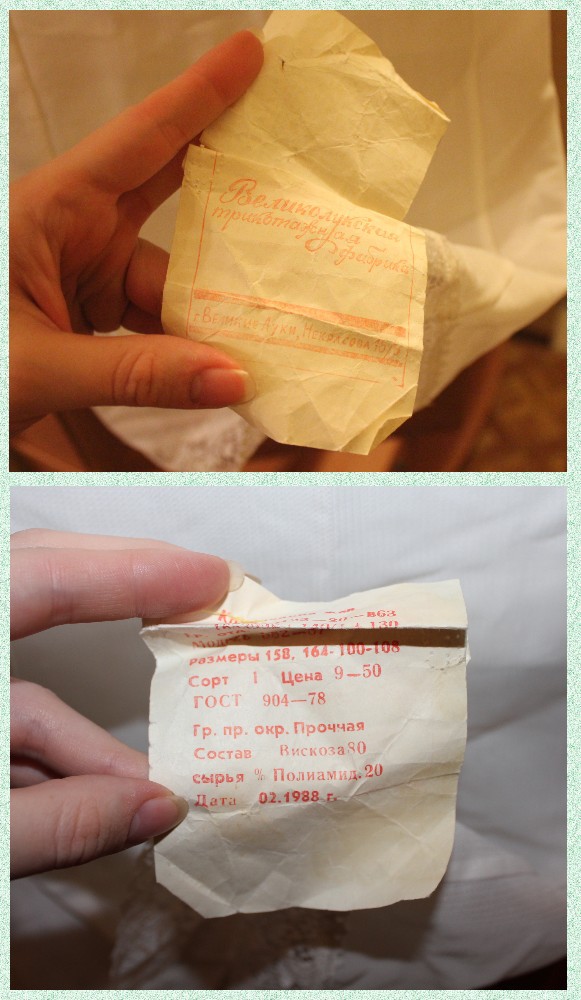 Великолукская
трикотажная
фабрика
г. Великие Луки, Некрасова
В63
130
Модель
Размеры 158, 164-100-108
Сорт 1 Цена 9—50
ГОСТ 904—78
Гр. пр. окр. Прочная
Состав Вискоза 80
сырья % Полиамид. 20
Дата 02.1988 г.